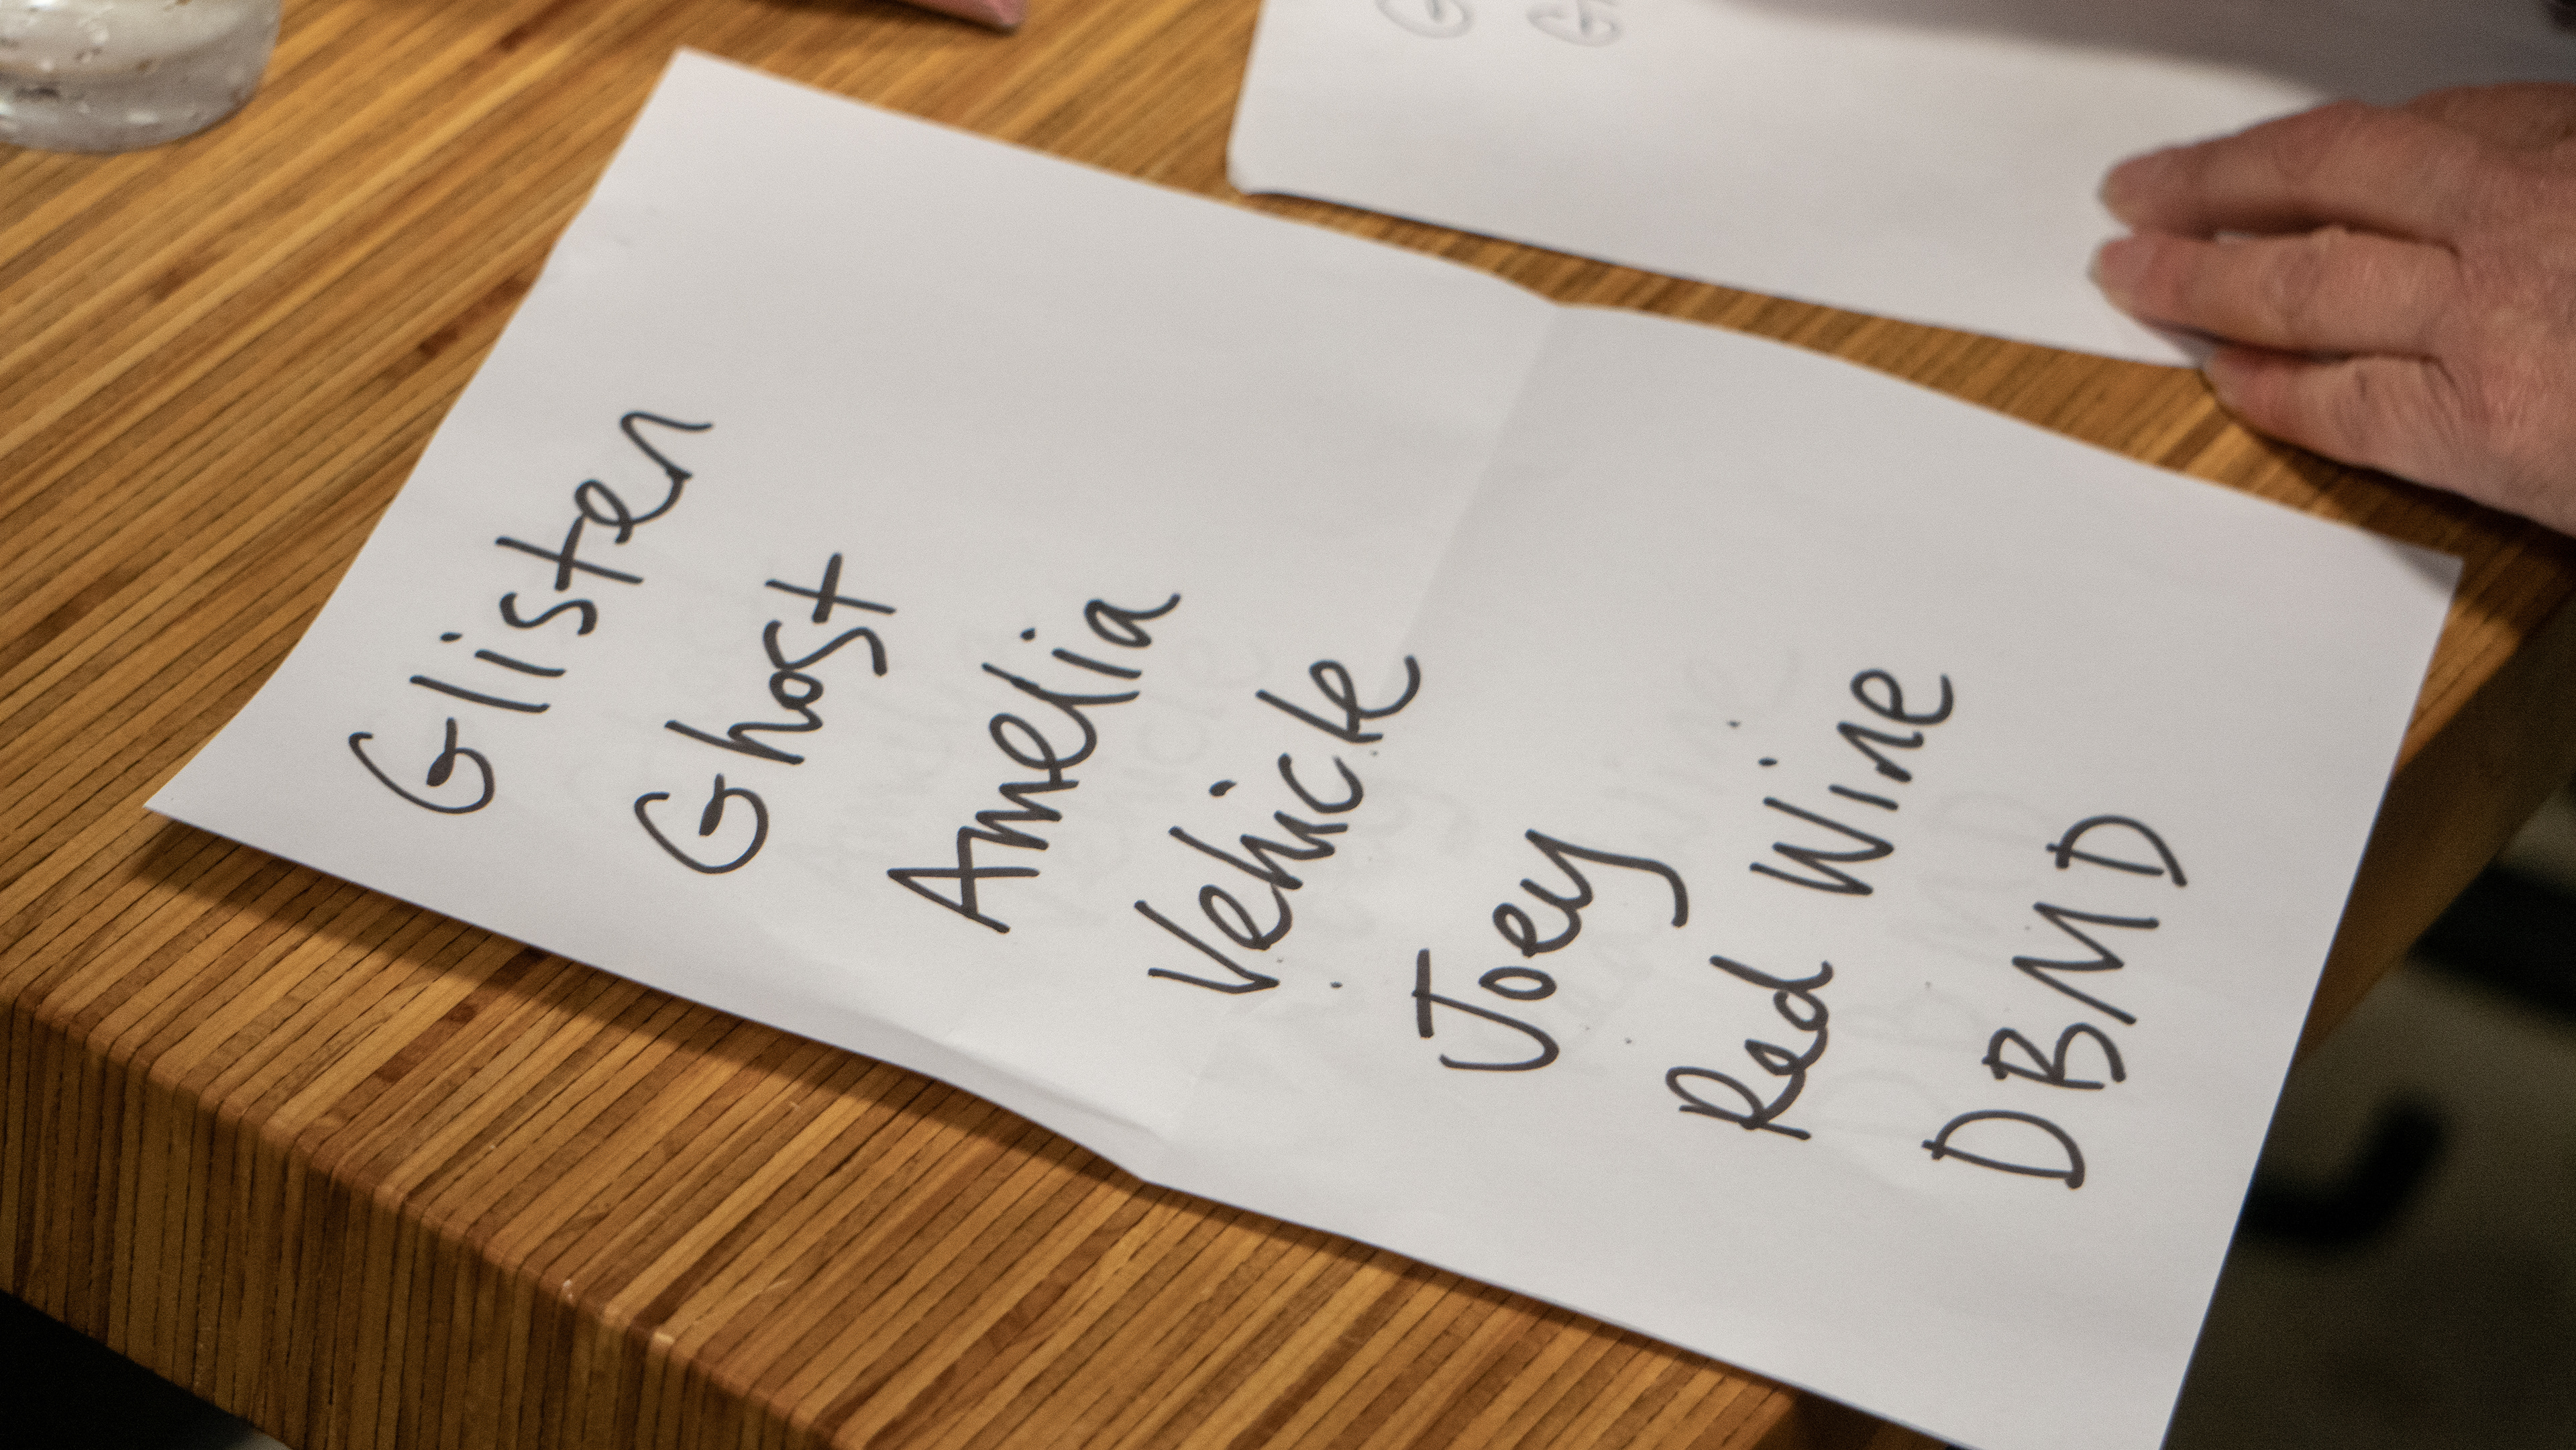 Glisten
Ghost
Amelia
Vehicle
Joey
Red Wine
DBMD